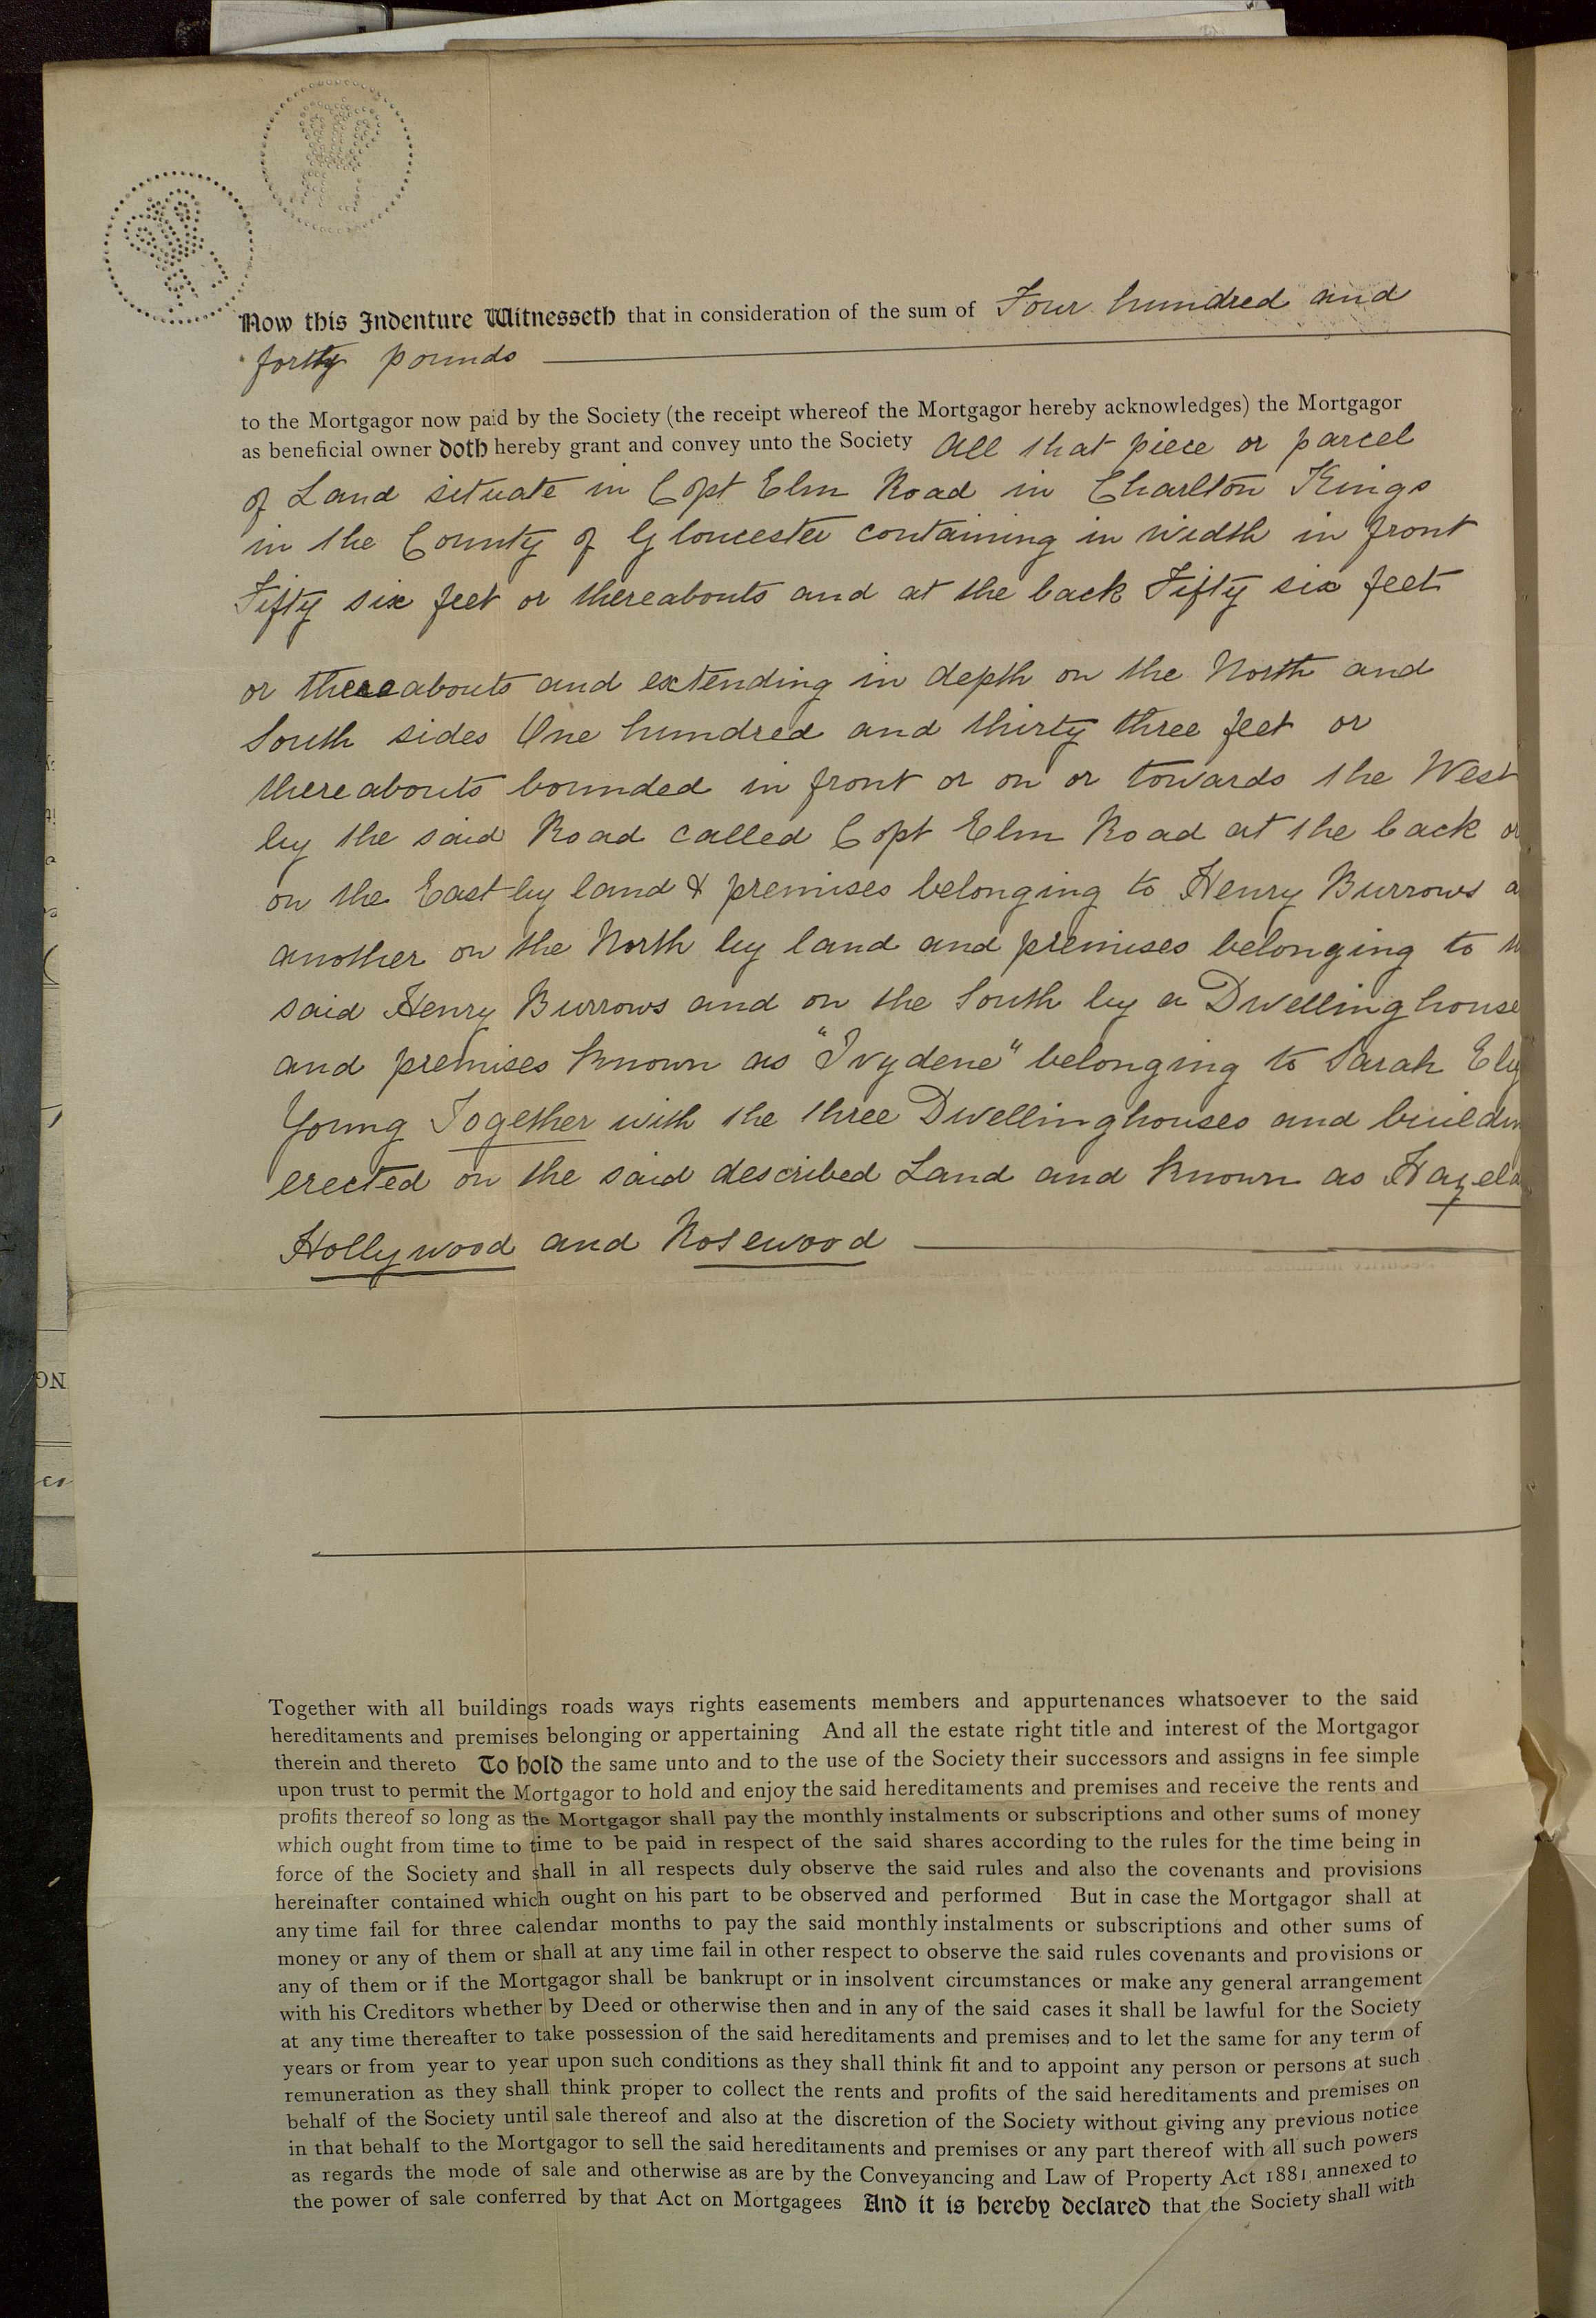 Now this Indenture Witnesseth that in consideration of the sum of Four hundred and
forty pounds
to the Mortgagor now paid by the Society (the receipt whereof the Mortgagor hereby acknowledges) the Mortgagor
as beneficial owner doth hereby grant and convey unto the Society All that piece or parcel
of Land situate in Copt Elm Road in Charlton Kings
in the County of Gloucester containing in width in front
Fifty six feet or thereabouts and at the back Fifty six feet
or thereabouts and extending in depth on the North and
South sides One hundred and thirty three feet or
thereabouts bounded in front or on or towards the West
by the said Road called Copt Elm Road at the back or
on the East by land & premises belonging to Henry Burrows
another on the North by land and premises belonging to
said Henry Burrows and on the South by a Dwellinghouse
and premises known as "Ivydene" belonging to Sarah
Young Together with the three Dwellinghouses and
erected on the said described Land and known as
Hollywood and Rosewood
Together with all buildings roads ways rights easements members and appurtenances whatsoever to the said
hereditaments and premises belonging or appertaining And all the estate right title and interest of the Mortgagor
therein and thereto To hold the same unto and to the use of the Society their successors and assigns in fee simple
upon trust to permit the Mortgagor to hold and enjoy the said hereditaments and premises and receive the rents and
profits thereof so long as the Mortgagor shall pay the monthly instalments or subscriptions and other sums of money
which ought from time to time to be paid in respect of the said shares according to the rules for the time being in
force of the Society and shall in all respects duly observe the said rules and also the covenants and provisions
hereinafter contained which ought on his part to be observed and performed But in case the Mortgagor shall at
any time fail for three calendar months to pay the said monthly instalments or subscriptions and other sums of
money or any of them or shall at any time fail in other respect to observe the said rules covenants and provisions or
any of them or if the Mortgagor shall be bankrupt or in insolvent circumstances or make any general arrangement
with his Creditors whether by Deed or otherwise then and in any of the said cases it shall be lawful for the Society
at any time thereafter to take possession of the said hereditaments and premises and to let the same for any term of
years or from year to year upon such conditions as they shall think fit and to appoint any person or persons at such
remuneration as they shall think proper to collect the rents and profits of the said hereditaments and premises on
behalf of the Society until sale thereof and also at the discretion of the Society without giving any previous notice
in that behalf to the Mortgagor to sell the said hereditaments and premises or any part thereof with all such powers
as regards the mode of sale and otherwise as are by the Conveyancing and Law of Property Act 1881 annexed to
the power of sale conferred by that Act on Mortgagees And it is hereby declared that the Society shall with